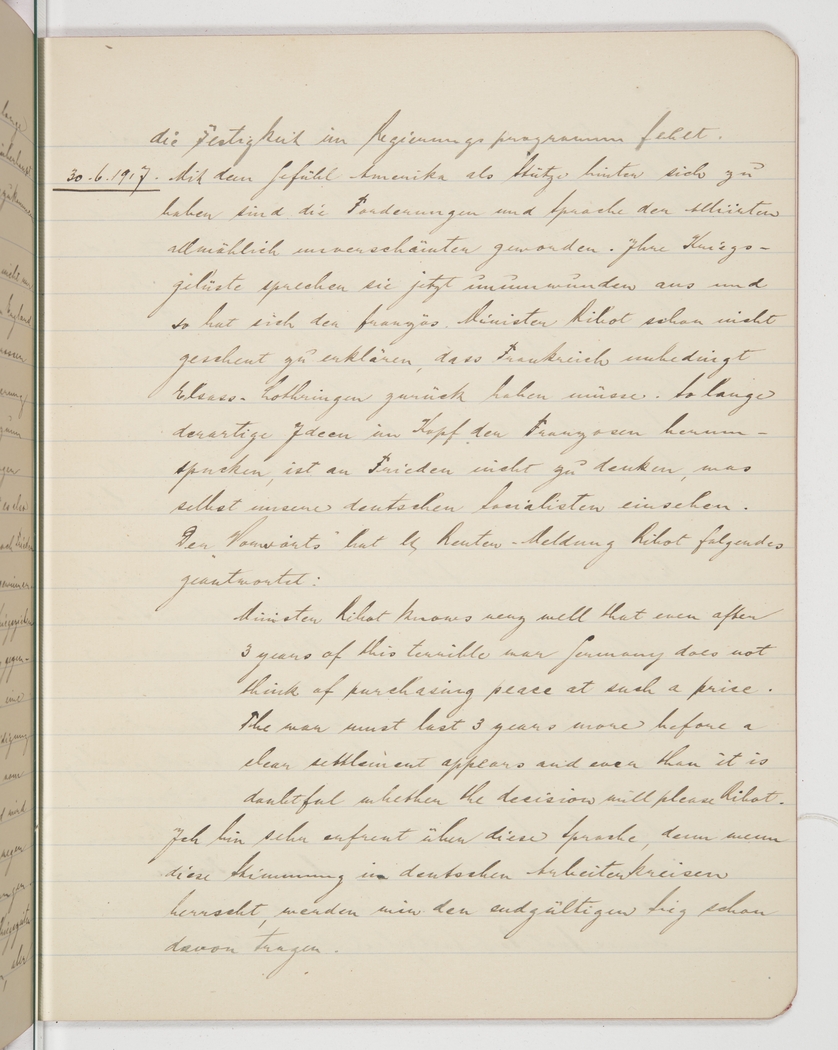 die Festigkeit im Regierungsprogramm fehlt.
30.6.1917. Mit dem Gefühl Amerika als Stütze hinter sich zu
haben sind die Forderungen und Sprache der Alliirten
allmählich unverschämter geworden. Ihre Kriegs-
gelüste sprechen sie jetzt unumwunden aus und
so hat sich der französ. Minister Ribot schon nicht
gescheut zu erklären, dass Frankreich unbedingt
Elsass-Lothringen zurück haben müsse. So lange
derartige Ideen im Kopf der Franzosen herum-
spucken, ist an Frieden nicht zu denken, was
selbst unsere deutschen Socialisten einsehen.
Der "Vorwärts" hat lt. Reuter-Meldung Ribot folgendes
geantwortet:
Minister Ribot knows very well that even after
3 years of this terrible war Germany does not
think of purchasing peace at such a price.
The war must last 3 years more before a
clear settlement appears and even than it is
doubtful whether the decision will please Ribot.
Ich bin sehr erfreut über diese Sprache, denn wenn
diese Stimmung in deutschen Arbeiterkreisen
herrscht, werden wir den endgültigen Sieg schon
davon tragen.